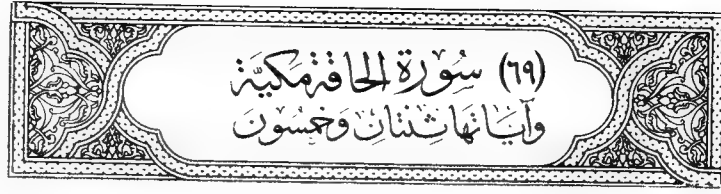 (٦٩) سُورَة الحَاقَّة مَكيَّة
وَآيَاتهَا ثِنتَان وَخمسُون